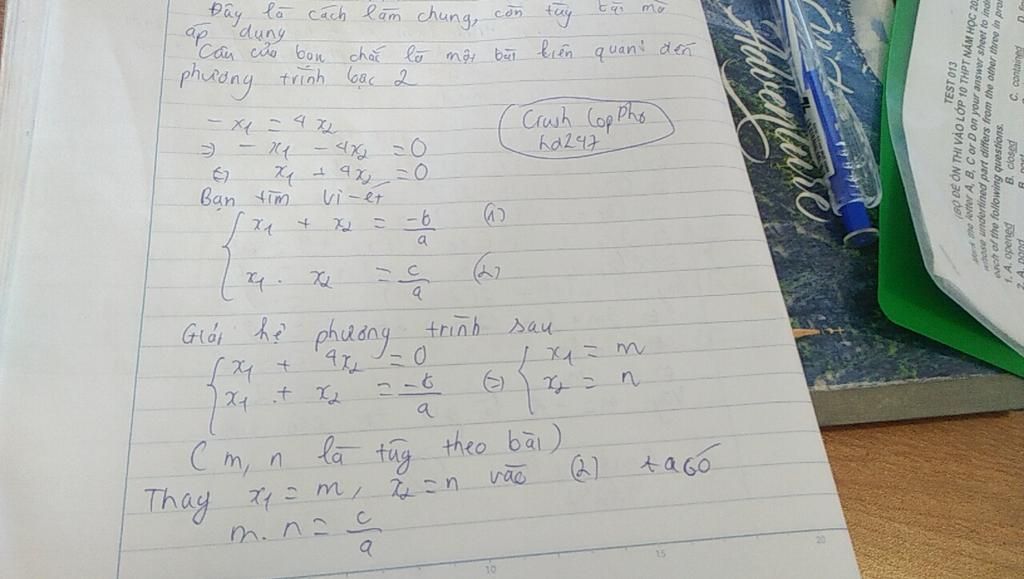 Đây là cách làm chung, còn tùy bài mà
áp dụng
Câu của bạn chắc là một bài liên quan đến
phương trình bậc 2
- x1 = 4 x2
=> - x1 - 4x2 = 0
<=> x1 + 4x2 = 0
Crush lớp Phó
hd247
Bạn tìm vi-ét
x1 + x2 = -b/a (1)
x1 . x2 = c/a (2)
Giải hệ phương trình sau
x1 + 4x2 = 0
x1 + x2 = -b/a <=> x1 = m
x2 = n
( m, n là tùy theo bài )
Thay x1 = m, x2 = n vào (2) ta có
m. n = c/a
TEST 013
(BỘ ĐỀ ÔN THI VÀO LỚP 10 THPT NĂM HỌC 20
the letter A, B, C or D on your answer sheet to indi
whose underlined part differs from the other three in pro
each of the following questions.
1. A. opened B. closed C. contained
Adventure